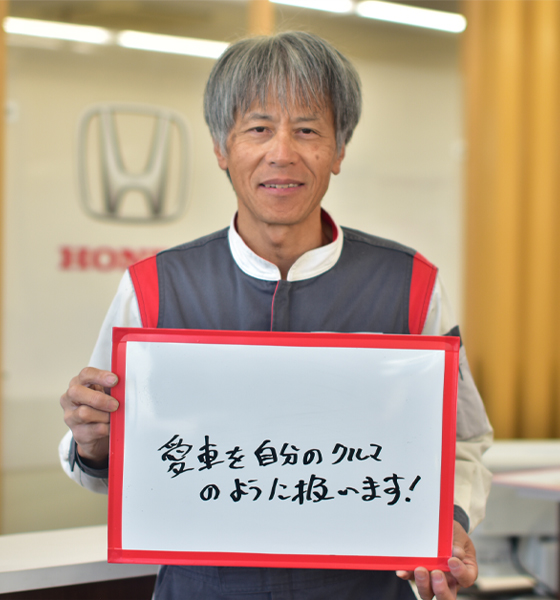 HONDA
愛車を自分のクルマ
のように扱います!